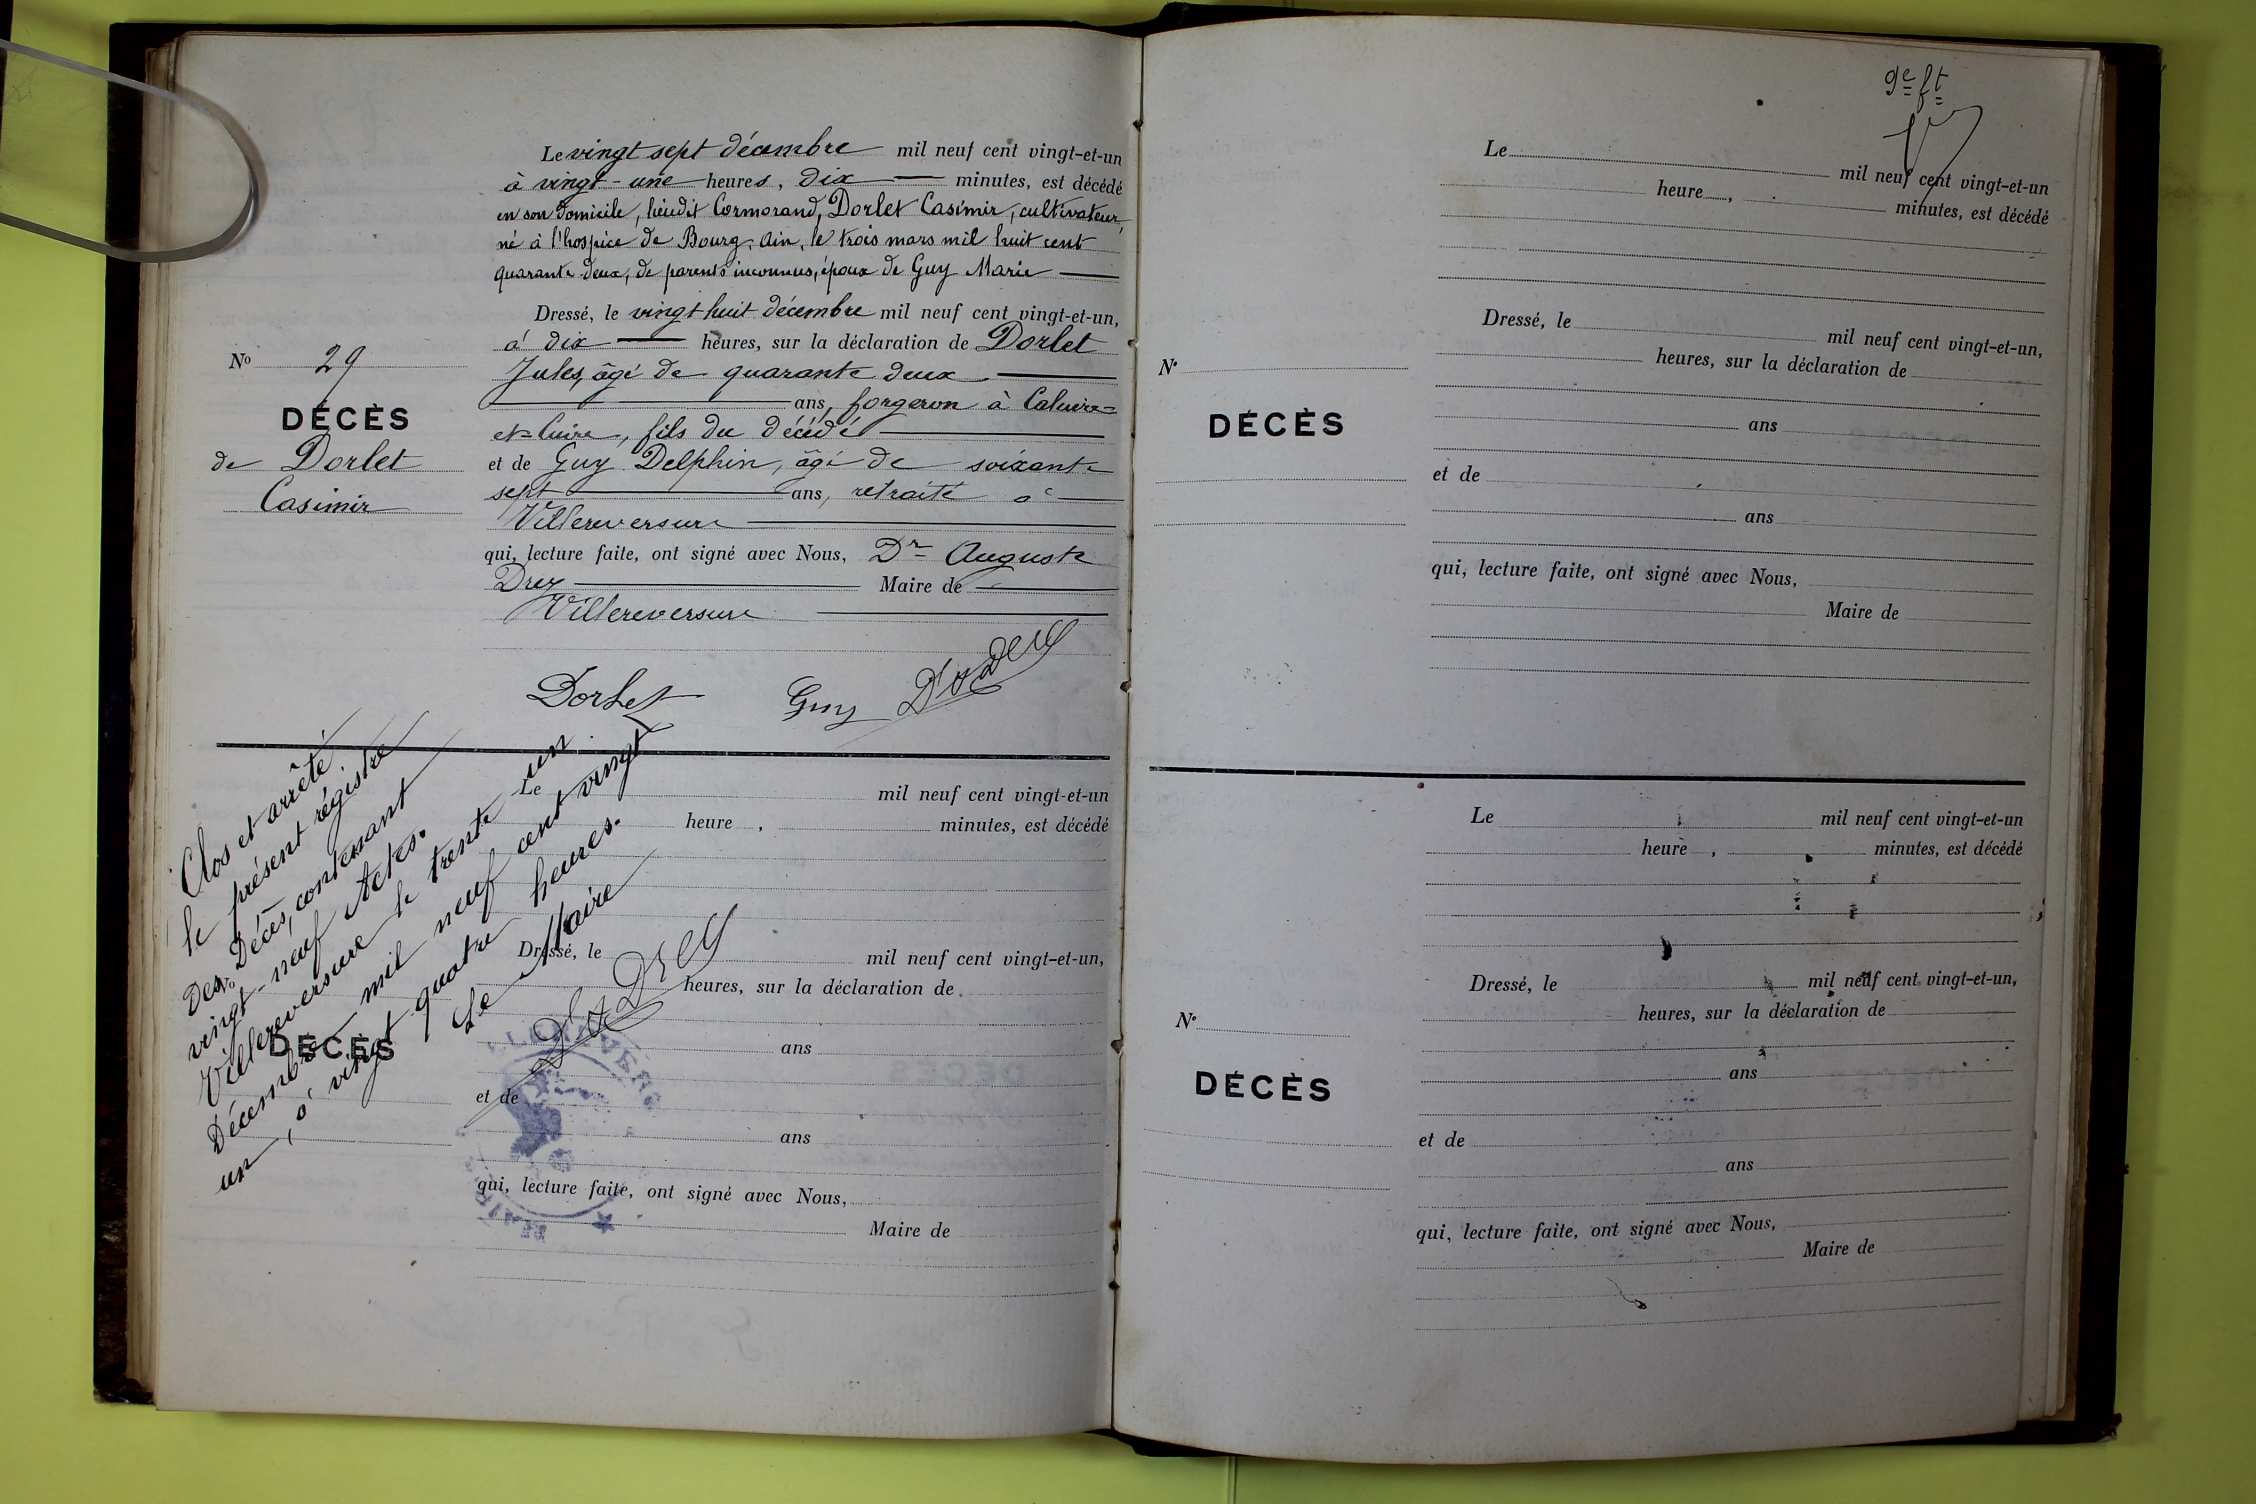 Le vingt sept décembre mil neuf cent vingt-et-un
à vingt-une heures, dix minutes, est décédé
en son domicile, lieudit Cormorand, Dorlet Casimir, cultivateur,
né à l'hospice de Bourg, Ain, le trois mars mil huit cent
quarante-deux, de parents inconnus, époux de Guy Marie
Dressé, le vingt huit décembre mil neuf cent vingt-et-un,
à dix heures, sur la déclaration de Dorlet
Jules, âgé de quarante deux
ans, forgeron à Caluire=
et=Cuire, fils du décédé
et de Guy Delphin, âgé de soixante
sept ans, retraité à
Villereversure
qui, lecture faite, ont signé avec Nous, Dr Auguste
Drey Maire de
Villereversure
Dorlet Guy Dr A Drey
No 29
DÉCÈS
de Dorlet
Casimir
Clos et arrêté
le présent régistre
Des Décès, contenant
vingt-neuf Actes.
Villereversure le trente un
Décembre mil neuf cent vingt
un, à vingt quatre heures.
Le Maire
Dr A Drey
No
DÉCÈS
Le mil neuf cent vingt-et-un
heure , minutes, est décédé
Dressé, le mil neuf cent vingt-et-un,
heures, sur la déclaration de
ans
et de
ans
qui, lecture faite, ont signé avec Nous,
Maire de
9e ft
Le mil neuf cent vingt-et-un
heure , minutes, est décédé
Dressé, le mil neuf cent vingt-et-un,
heures, sur la déclaration de
No
DÉCÈS
ans
et de
ans
qui, lecture faite, ont signé avec Nous,
Maire de
Le mil neuf cent vingt-et-un
heure , minutes, est décédé
Dressé, le mil neuf cent vingt-et-un,
heures, sur la déclaration de
No
DÉCÈS
ans
et de
ans
qui, lecture faite, ont signé avec Nous,
Maire de